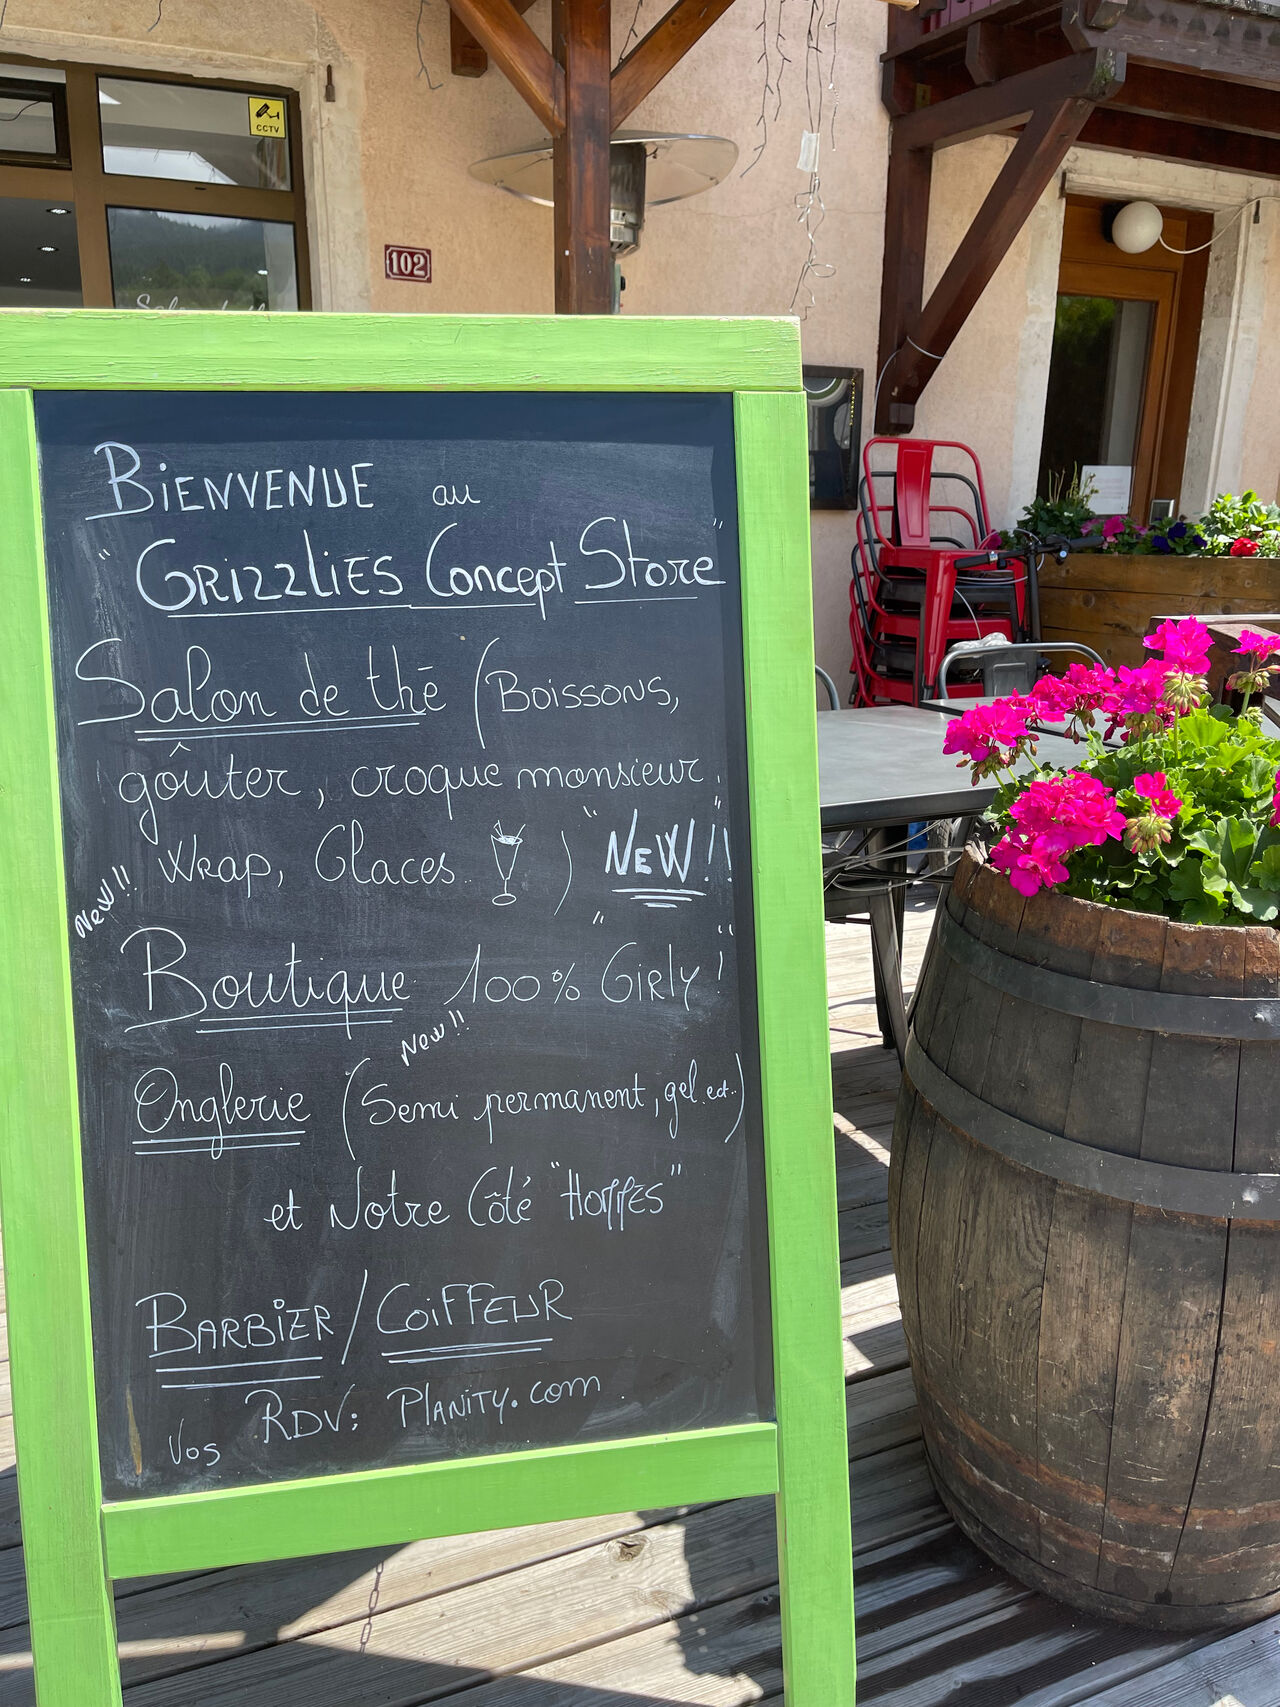 CCTV
102
BiENVENUE au
"GRIZZLIES Concept Store"
Salon de thé (Boissons,
goûter, croque monsieur,
WRAP, Glaces ) "NEW!!"
New!!
Boutique 100% "GIRLY!"
New!!
Onglerie (Semi permanent, gel. ect..)
et Notre Côté "HOMMES"
BARBIER / COIFFEUR
Vos RDV: PLANITY.com